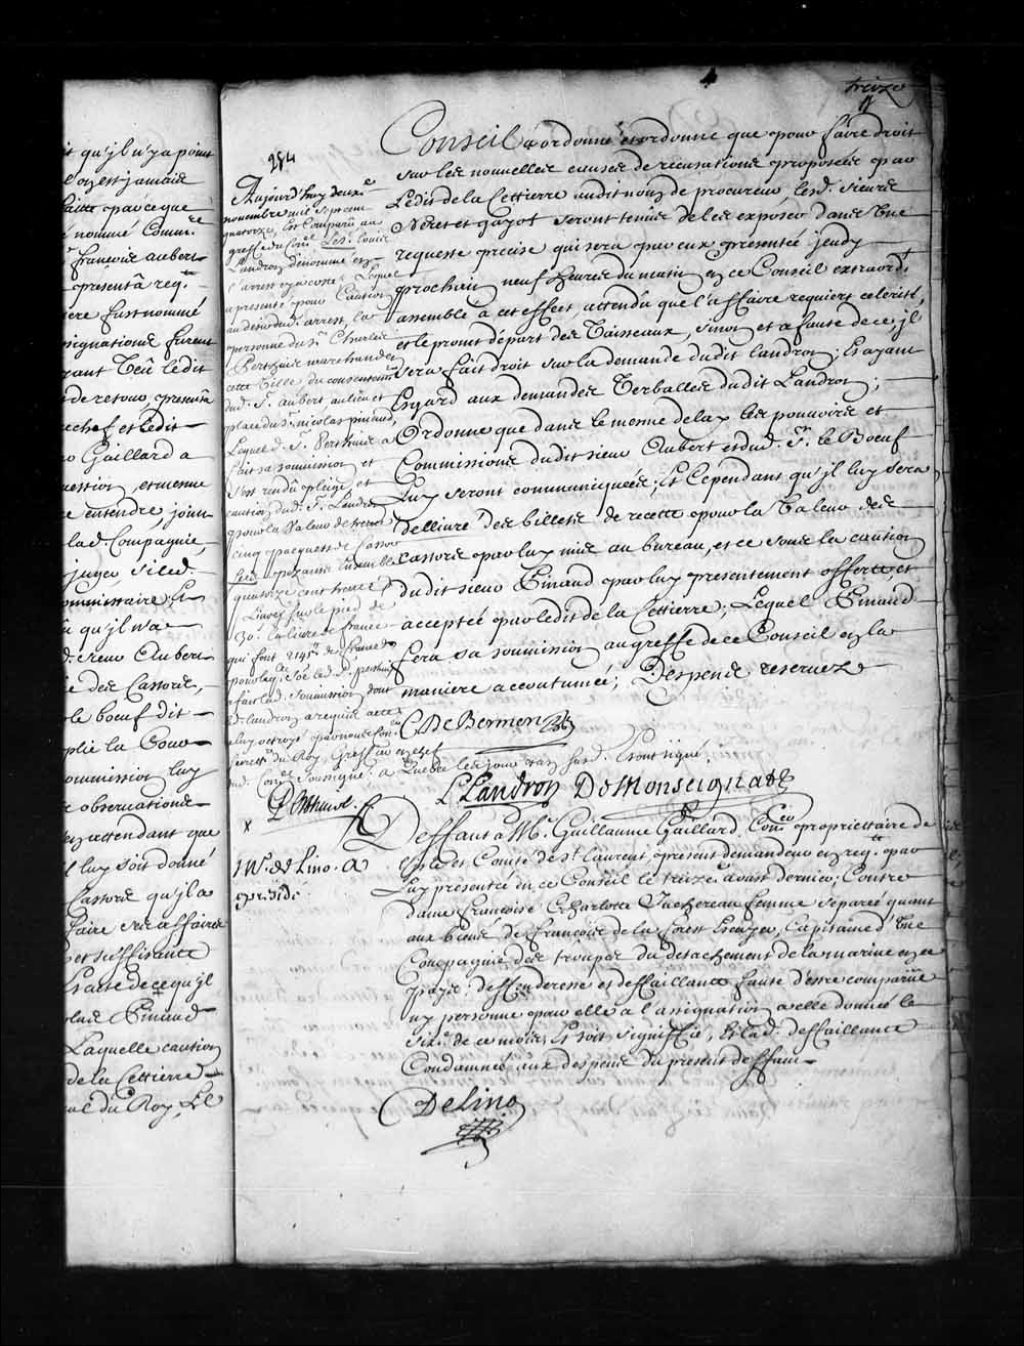 it qu'jl n'y a point
l'oy est jamais
faitte parce que
nommé Comm.re
françois aubert
presentâ req.te
fust nommé
signations furent
veû ledit
de retour, presentâ
echef, et ledit
Gaillard a
uession, et mesme
entendre, jour
lad. Compagnie,
juger, si led.
ommissaire, Et
qu'jl n'a
d. sieur Aubert
des Castors,
le bœuf dit
plie la Cour
ommission luy
observations
en attendant que
jl luy soit donné
Castors qu'jl a
faire ses affaires
et suffisante
Et acte de ce qu'jl
Pinaud
Laquelle caution
de la Cettierre
du Roy, Le
treize
284
Conseil a ordonné et ordonne que pour faire droit
sur les nouvelles causes de recusations proposées par
Ledit de la Cettierre audit nom de procureur lesd. sieurs
Neret et gayot seront tenus de les exposer dans une
requeste precise qui sera par eux presentée jeudy
prochain neuf heures du matin en ce Conseil extraord.
assemblé a cet effect, attendu que l'affaire requiert celerité,
et le promt départ des Vaisseaux, sinon et a faute de ce, jl
sera fait droit sur la demande dudit landron; Et ayant
Esgard aux demandes Verballes dudit Landron;
Ordonne que dans le mesme delay les pouvoirs et
Commissions dudit sieur Aubert et dud. Sr. le Boeuf
Luy seront communiquées; Et Cependant qu'jl luy sera
dellivré des billets de recette pour la Valeur des
castors par luy mis au bureau, et ce sous la caution
dudit sieur Pinaud par luy presentement offerte, et
acceptée par ledit de la Cettierre; Lequel Pinaud
fera sa soumission au greffe de ce Conseil en la
maniere accoutumée; Despens reservez
C De Bermen
Aujourd'huy deuxie.
novembre mil sept cent
quatorze, Est Comparu au
greffe du Con.el Le S. louis
Landron dénommé en
l'arrest cy a costé, Lequel
a presenté pour Caution
au desir dud. arrest, la
personne du Sr. Charles
Perthuis marchand de
cette Ville du consentement
dud. Sr. aubert au lieu et
place du Sr. nicolas pinaud,
Lequel d. Sr. Perthuis a
fait sa soumission et
s'est rendû pleige, et
caution dud. Sr. Landron
pour la Valeur de trente
cinq pacquets de Castor
pezants Ensemble
quatorze cent trente
Livres sur le pied de
30s. la livre de france
qui font 2145# de france
a fait lad. soumission dont
led. landron a requis acte
a luy octroyé par nous Con.er
secret.re du Roy Greffier en chef
aud. Con.el Soussigné; a Québec les jour et an susd. Et ont signé.
Perthuis
L Landron DeMonseignat
x
Mr. de Lino. a
presidé
Deffaut a Mr. Guillaume Gaillard Con.er proprietaire de
Isle et Comté de St. Laurent present demandeur en req.te par
Luy presentée en ce Conseil le treize.e avant dernier; Contre
dame françoise Charlotte Juchereau femme separée quant
aux biens de françois de la forest Escuyer, Capitaine d'une
Compagnie des troupes du detachement de la marine en ce
pays. deffenderesse et deffaillante faute d'estre comparüe
ny personne pour elle a l'assignation a elle donnée le
six.e de ce mois, Et soit signiffié, Et lad. deffaillante
Condamnée aux despens du present deffaut
DeLino